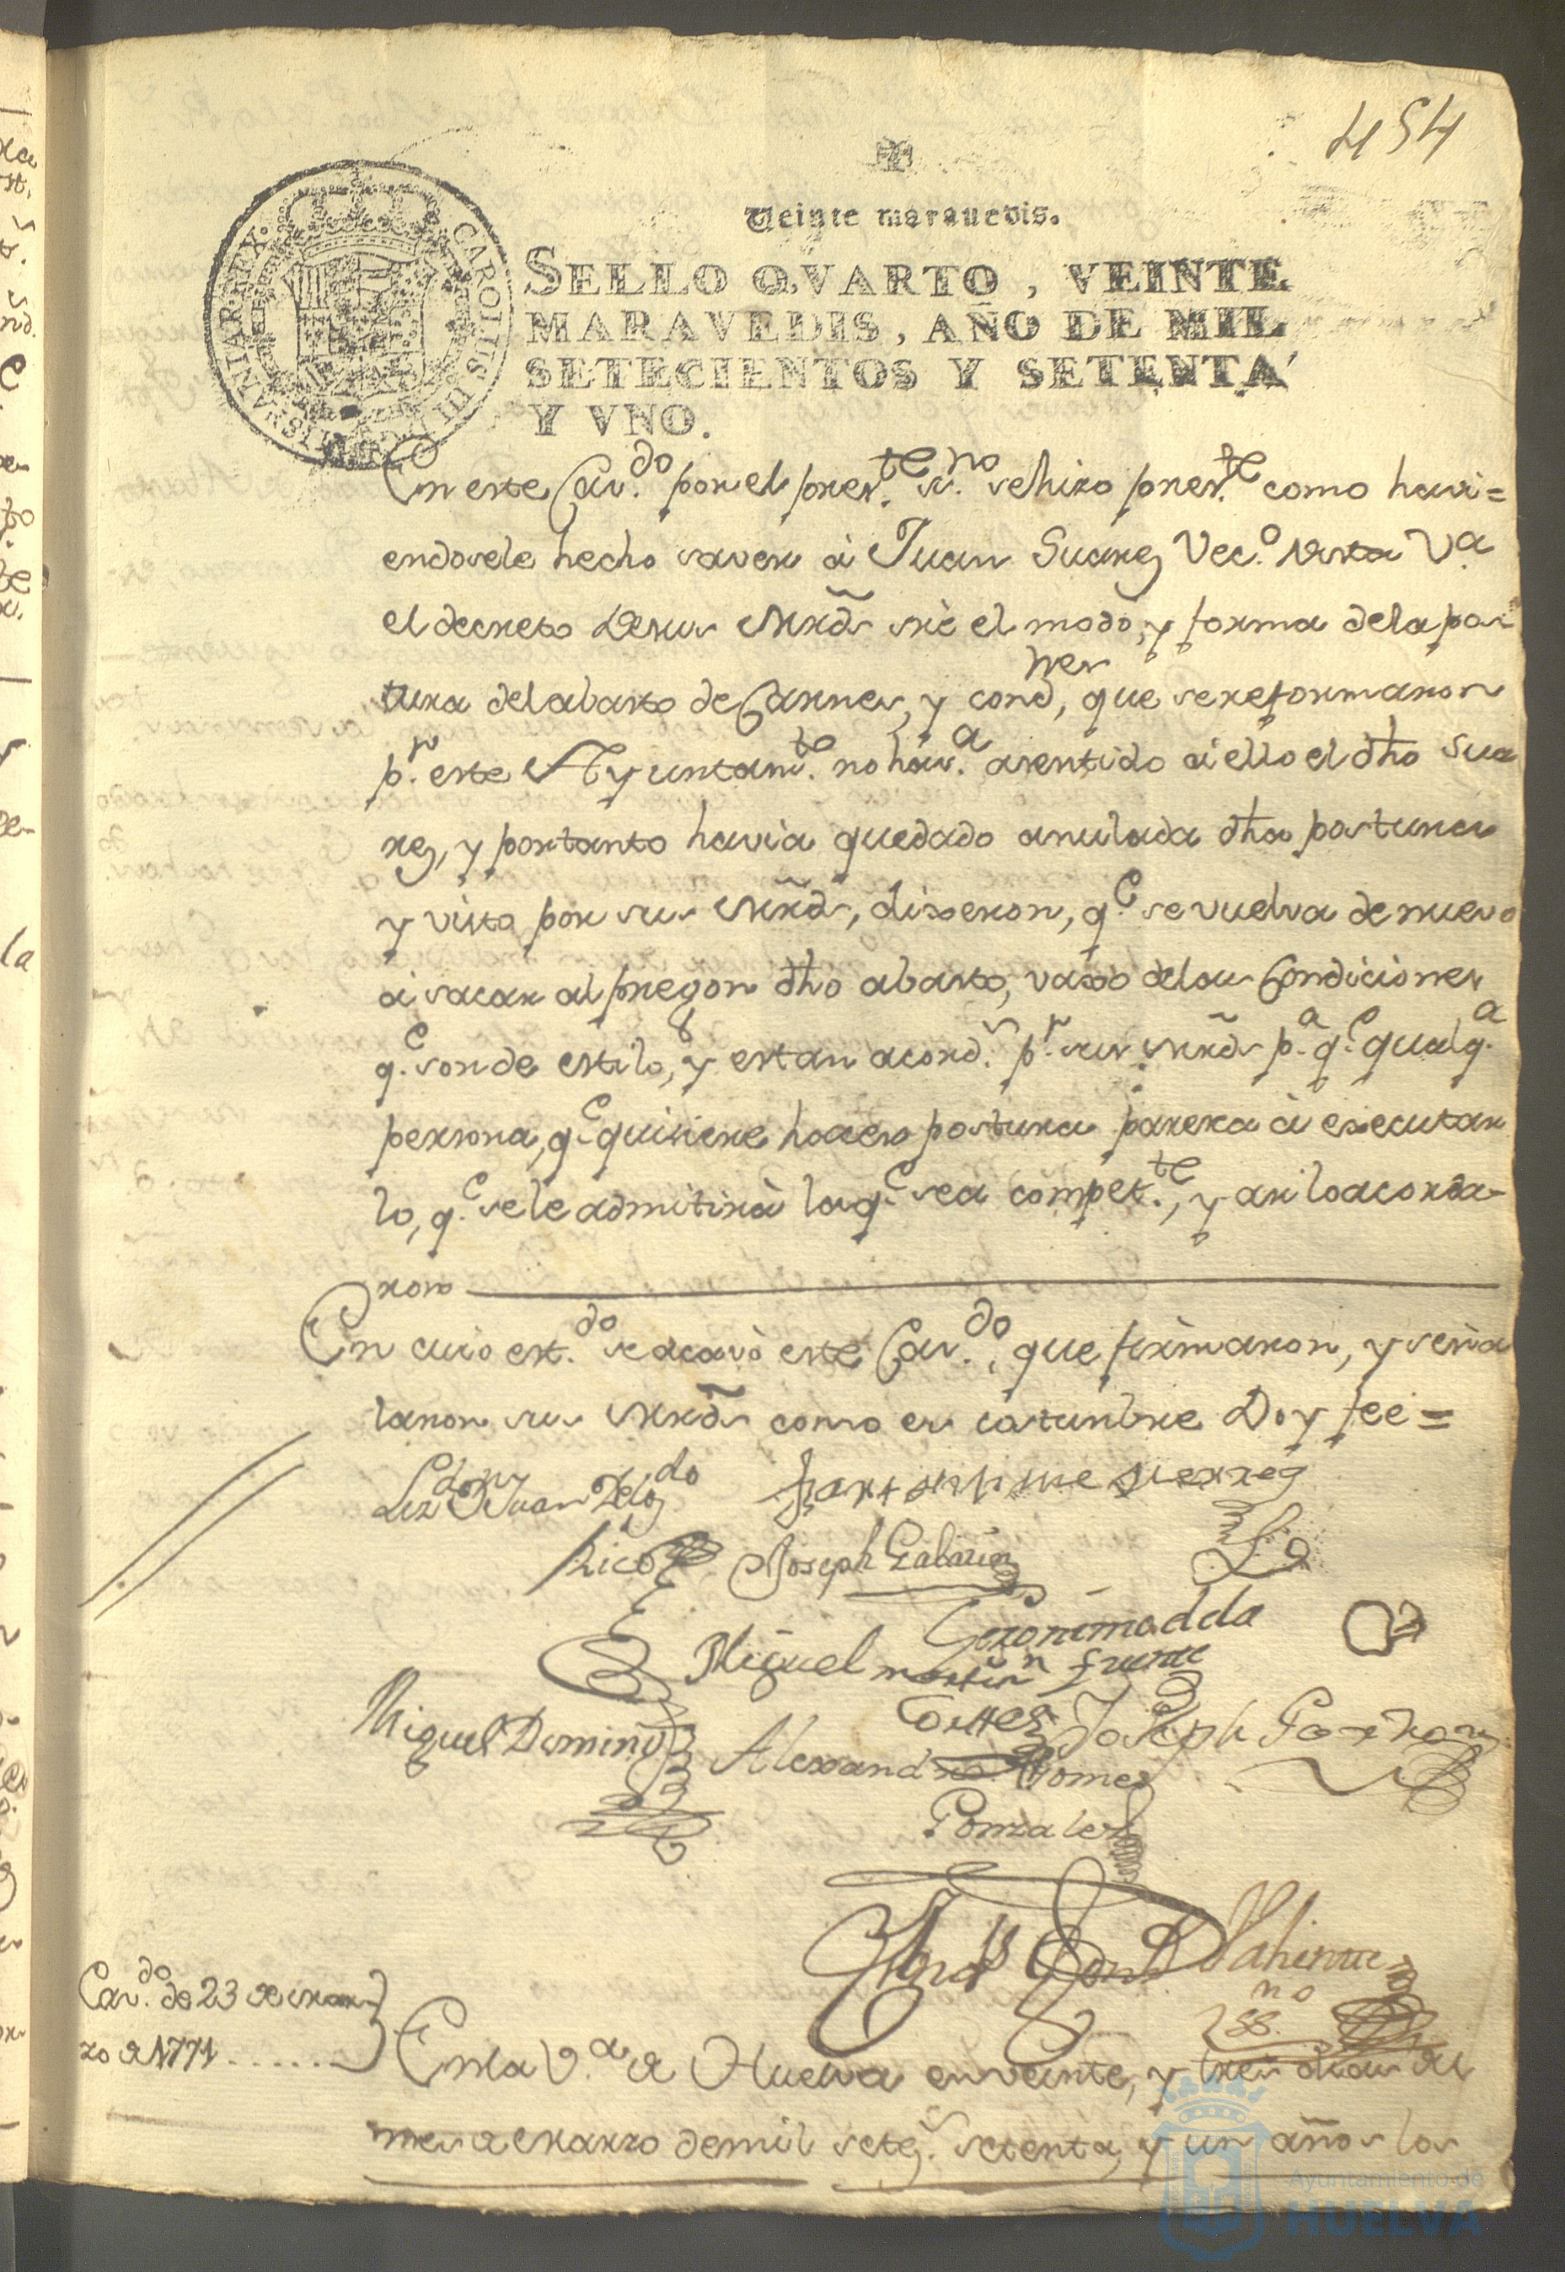 454
Veinte maravedis.
SELLO QVARTO, VEINTE
MARAVEDIS, AÑO DE MIL
SETECIENTOS Y SETENTA
Y VNO.
CAROLUS III D G HISPANIAR REX
En este Cav.do por el pres.te ss.no se hizo pres.te como havi=
endosele hecho saver à Juan Suarez Vec.o desta V.a
el decreto de sus Mrds sre el modo, y forma de la pos
tura del abasto de Carnes, y cond.nes, que se reformaron
p.r este Ayuntam.to no hav.a asentido à ello el dho Sua
rez, y por tanto havia quedado anulada dha postura
y visto por sus Mrds, dixeron, q.e se vuelva de nuevo
à sacar al pregon dho abasto, vaxo de las Condiciones
q.e son de estilo, y estan acord.s p.r sus Mrds p.a q.e qualq.a
persona, q.e quisiere hacer postura paresca à executar
lo, q.e se le admitirà la q.e sea compet.te, y asi lo acorda-
ron
En cuio est.do se acavò este Cav.do, que firmaron, y seña
laron sus Mrds como es costumbre Doy fee=
Lizdo Dn Juan Delg.do
Rico
Joseph Galavin
Geronimo d dla
fuente
Miguel martin
Cortes
Miguel Deminº
Joseph Garzon
Alexandro Gomez
Gonzalez
Cav.do de 23 de mar
zo d 1771......
En la V.a de Huelva en veinte, y tres dias del
mes de Marzo de mil setez.s setenta, y un años los
Ayuntamiento de
HUELVA